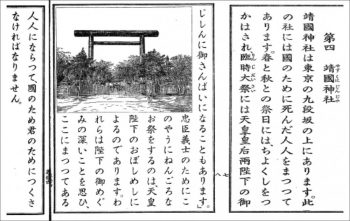 第四 靖國神社
靖國神社は東京の九段坂の上にあります。此
の社には國のために死んだ人人をまつつて
あります。春と秋との祭日にはちよくしをつ
かはされ臨時大祭には天皇皇后兩陛下の御
じしんに御さんぱいになることもあります。
忠臣義士のためにこ
のやうにねんごろな
お祭をするのは天皇
陛下のおぼしめしに
よるのであります。わ
れらは陛下の御めぐ
みの深いことを思ひ、
ここにまつつてある
人人にならつて、國のため君のためにつくさ
なければなりません。